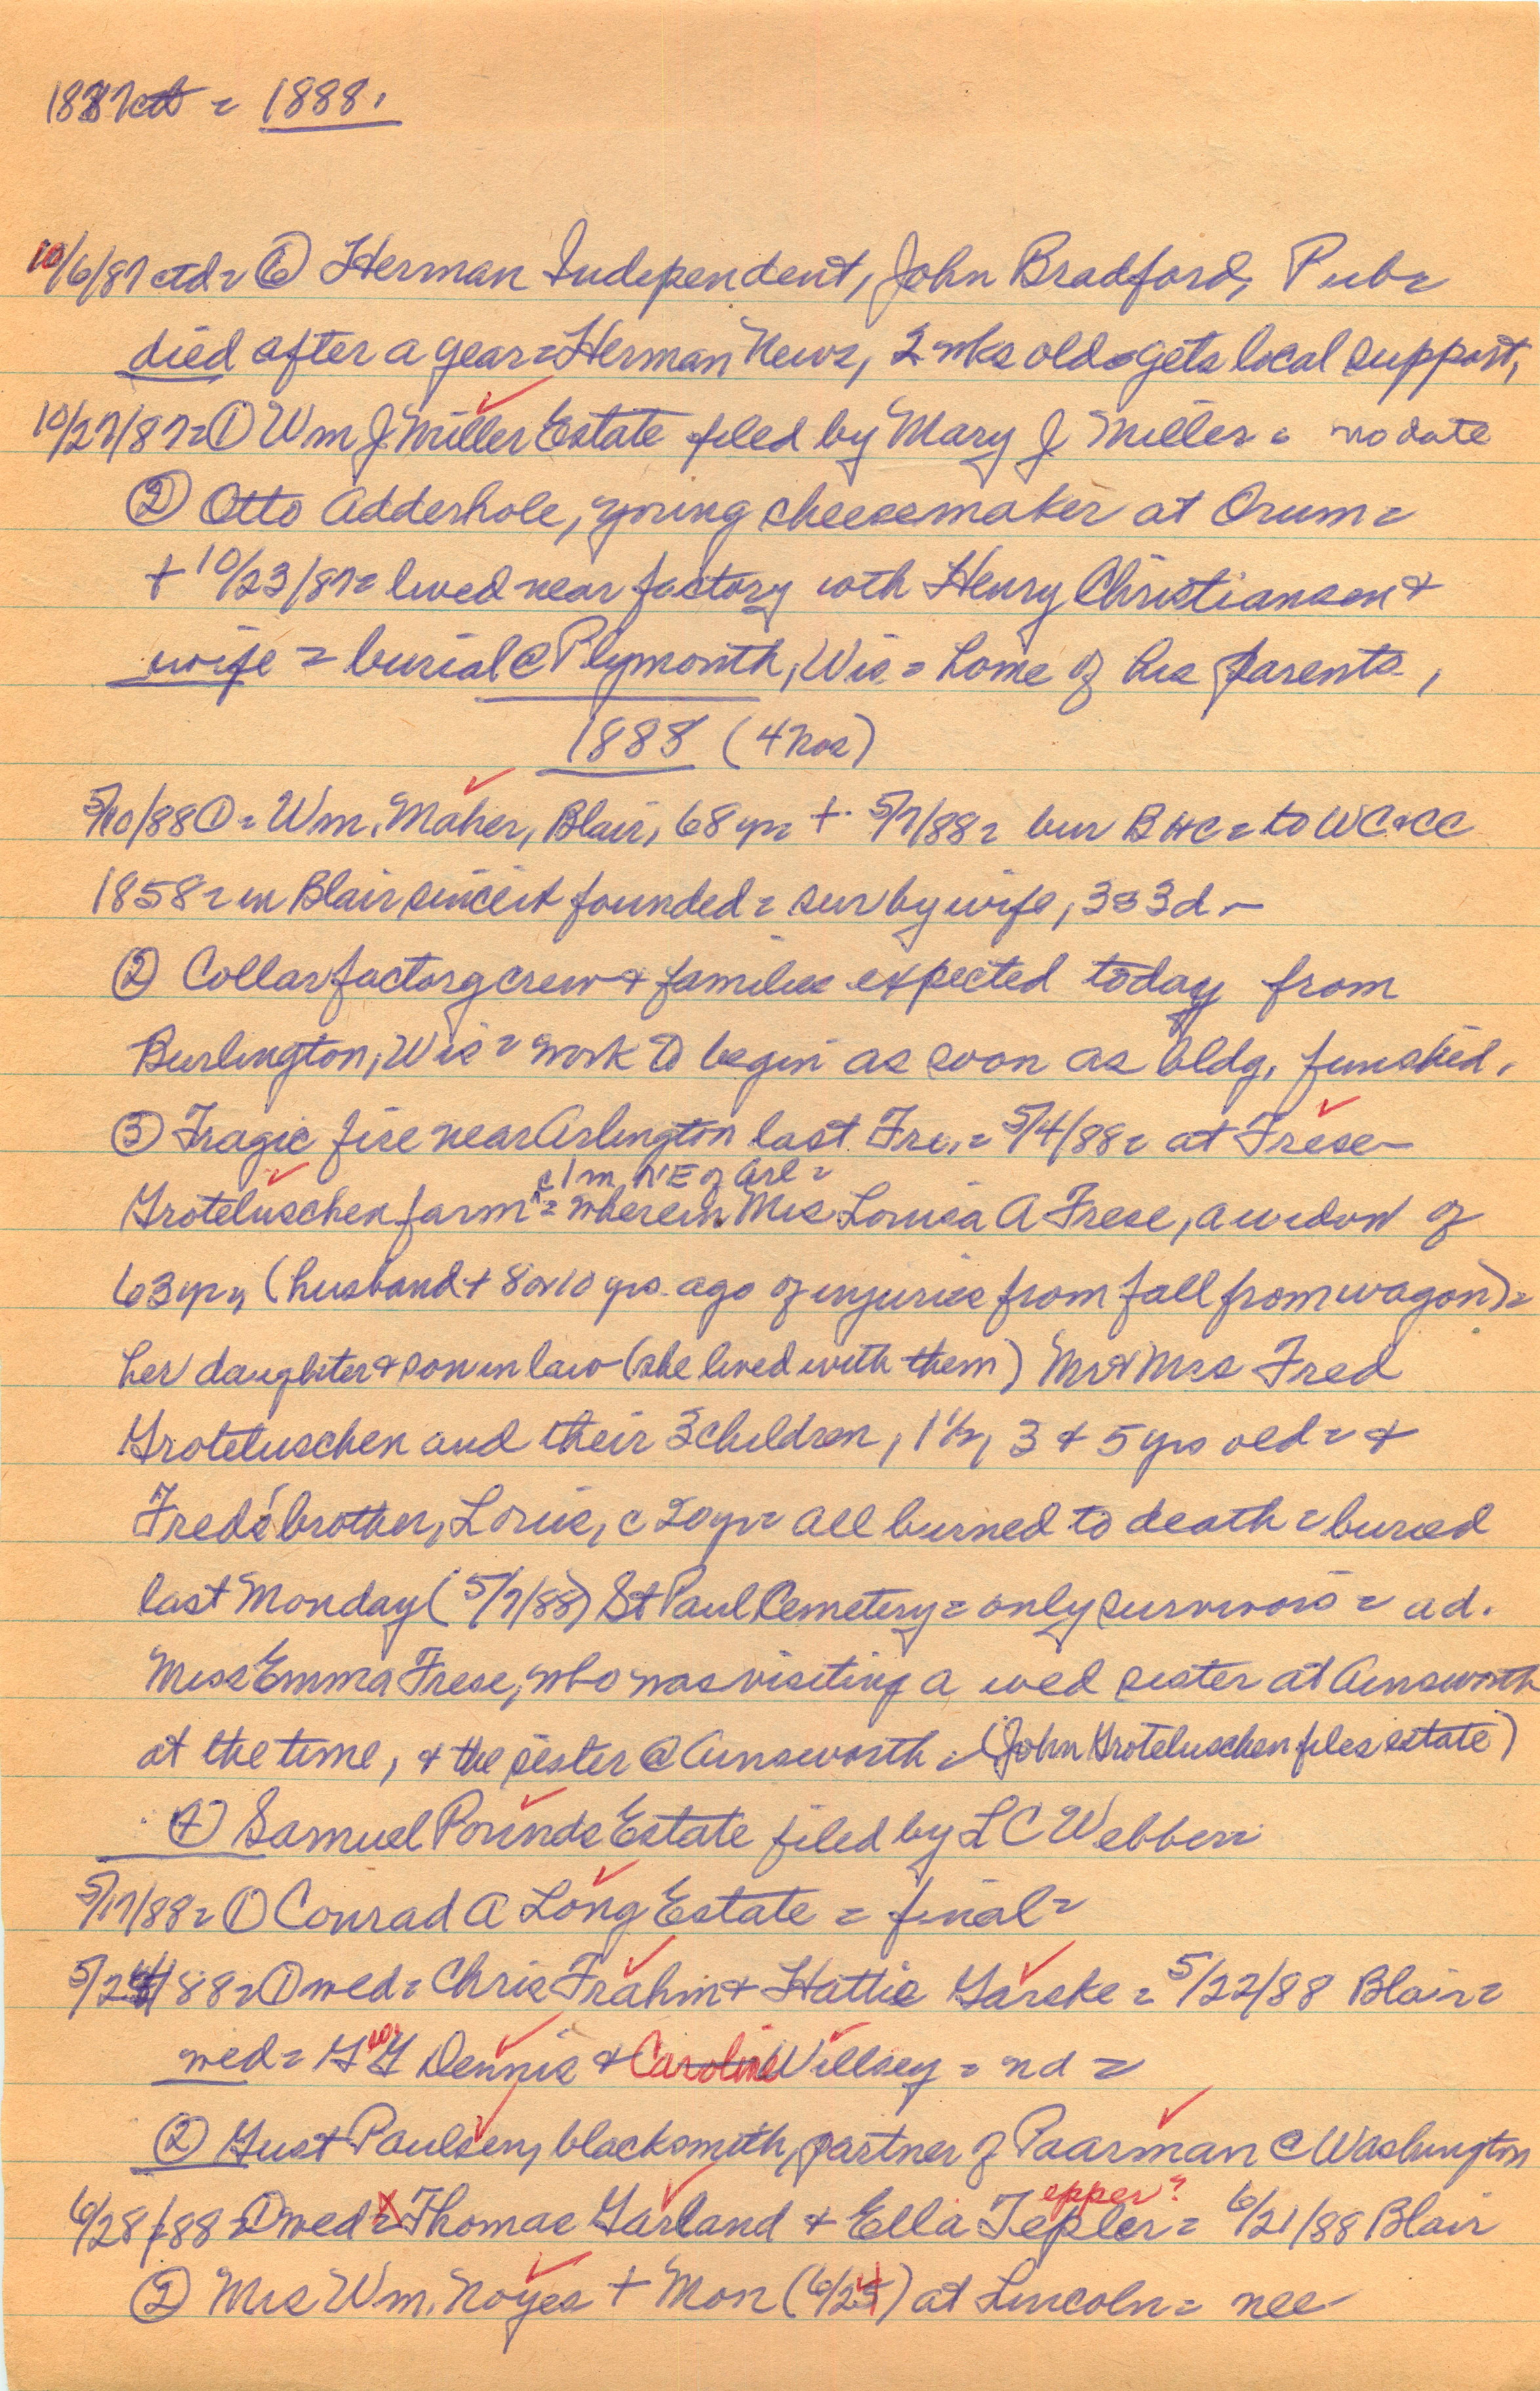 1887 ctd = 1888.
10/6/87 ctd = ⑥ Herman Independent, John Bradford, Pub =
died after a year = Herman News, 2 wks old = gets local support,
10/27/87 = ① Wm J Miller Estate filed by Mary J Miller = no date
② Otto Adderhole, young cheesemaker at Orum =
+ 10/23/87 = lived near factory with Henry Christiansen &
wife = burial @ Plymouth, Wis. = home of his parents,
1888 (4 nos)
5/10/88 ① = Wm. Maher, Blair, 68 yr = + 5/7/88 = bur BHC = to WC & CC
1858 = in Blair since it founded = sur by wife, 3s 3d. -
② Collar factory crew & families expected today from
Burlington, Wis = work to begin as soon as bldg. finished.
③ Tragic fire near Arlington last Fri. = 5/4/88 = at Frese -
c 1 m NE of Arl =
Groteluschen farm ^ = wherein Mrs Louisa A Frese, a widow of
63 yr, (husband + 8 or 10 yrs. ago of injuries from fall from wagon) =
her daughter & son in law (she lived with them) Mr & Mrs Fred
Groteluschen and their 3 children, 1 1/2, 3 & 5 yrs old = &
Fred's brother, Louis, c 20 yr = all burned to death = buried
last Monday (5/7/88) St Paul Cemetery = only survivors = ad.
Miss Emma Frese, who was visiting a wed sister at Ainsworth
at the time, & the sister @ Ainsworth = (John Groteluschen files estate)
④ Samuel Pounds Estate filed by L C Webber =
5/17/88 = ① Conrad A Long Estate = final =
5/24/88 = ① wed = Chris Frahm & Hattie Garske = 5/22/88 Blair =
wed = G W Dennis & Caroline Willsey = nd =
② Gust Paulsen, blacksmith, partner of Paarman @ Washington
epper?
6/28/88 ① wed = Thomas Garland & Ella Tepler = 6/21/88 Blair
② Mrs Wm. Noyes + Mon (6/25) at Lincoln = nee